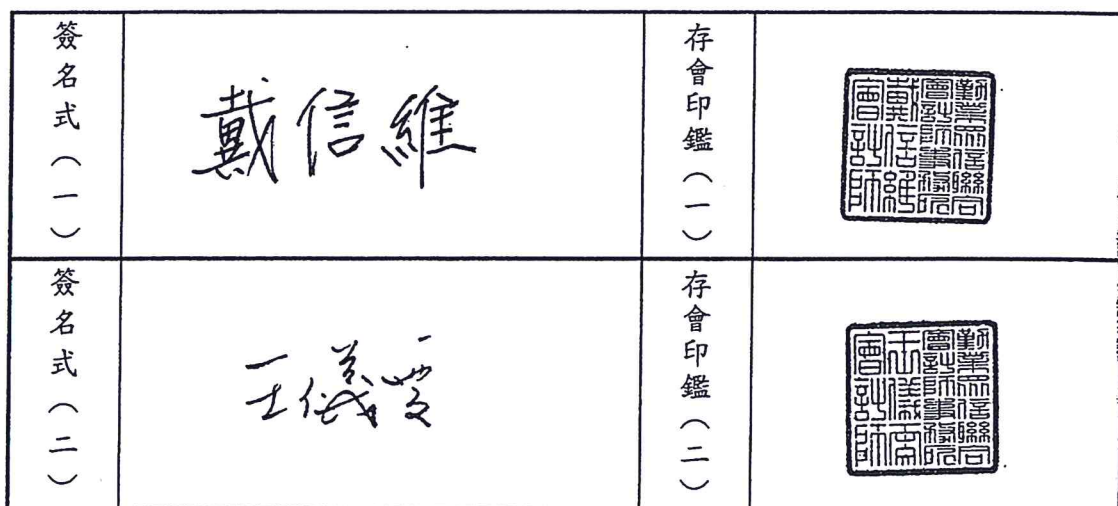 簽名式（一）
戴信維
存會印鑑（一）
勤業眾信聯合
會計師事務所
戴信維
會計師
簽名式（二）
王儀雯
存會印鑑（二）
勤業眾信聯合
會計師事務所
王儀雯
會計師